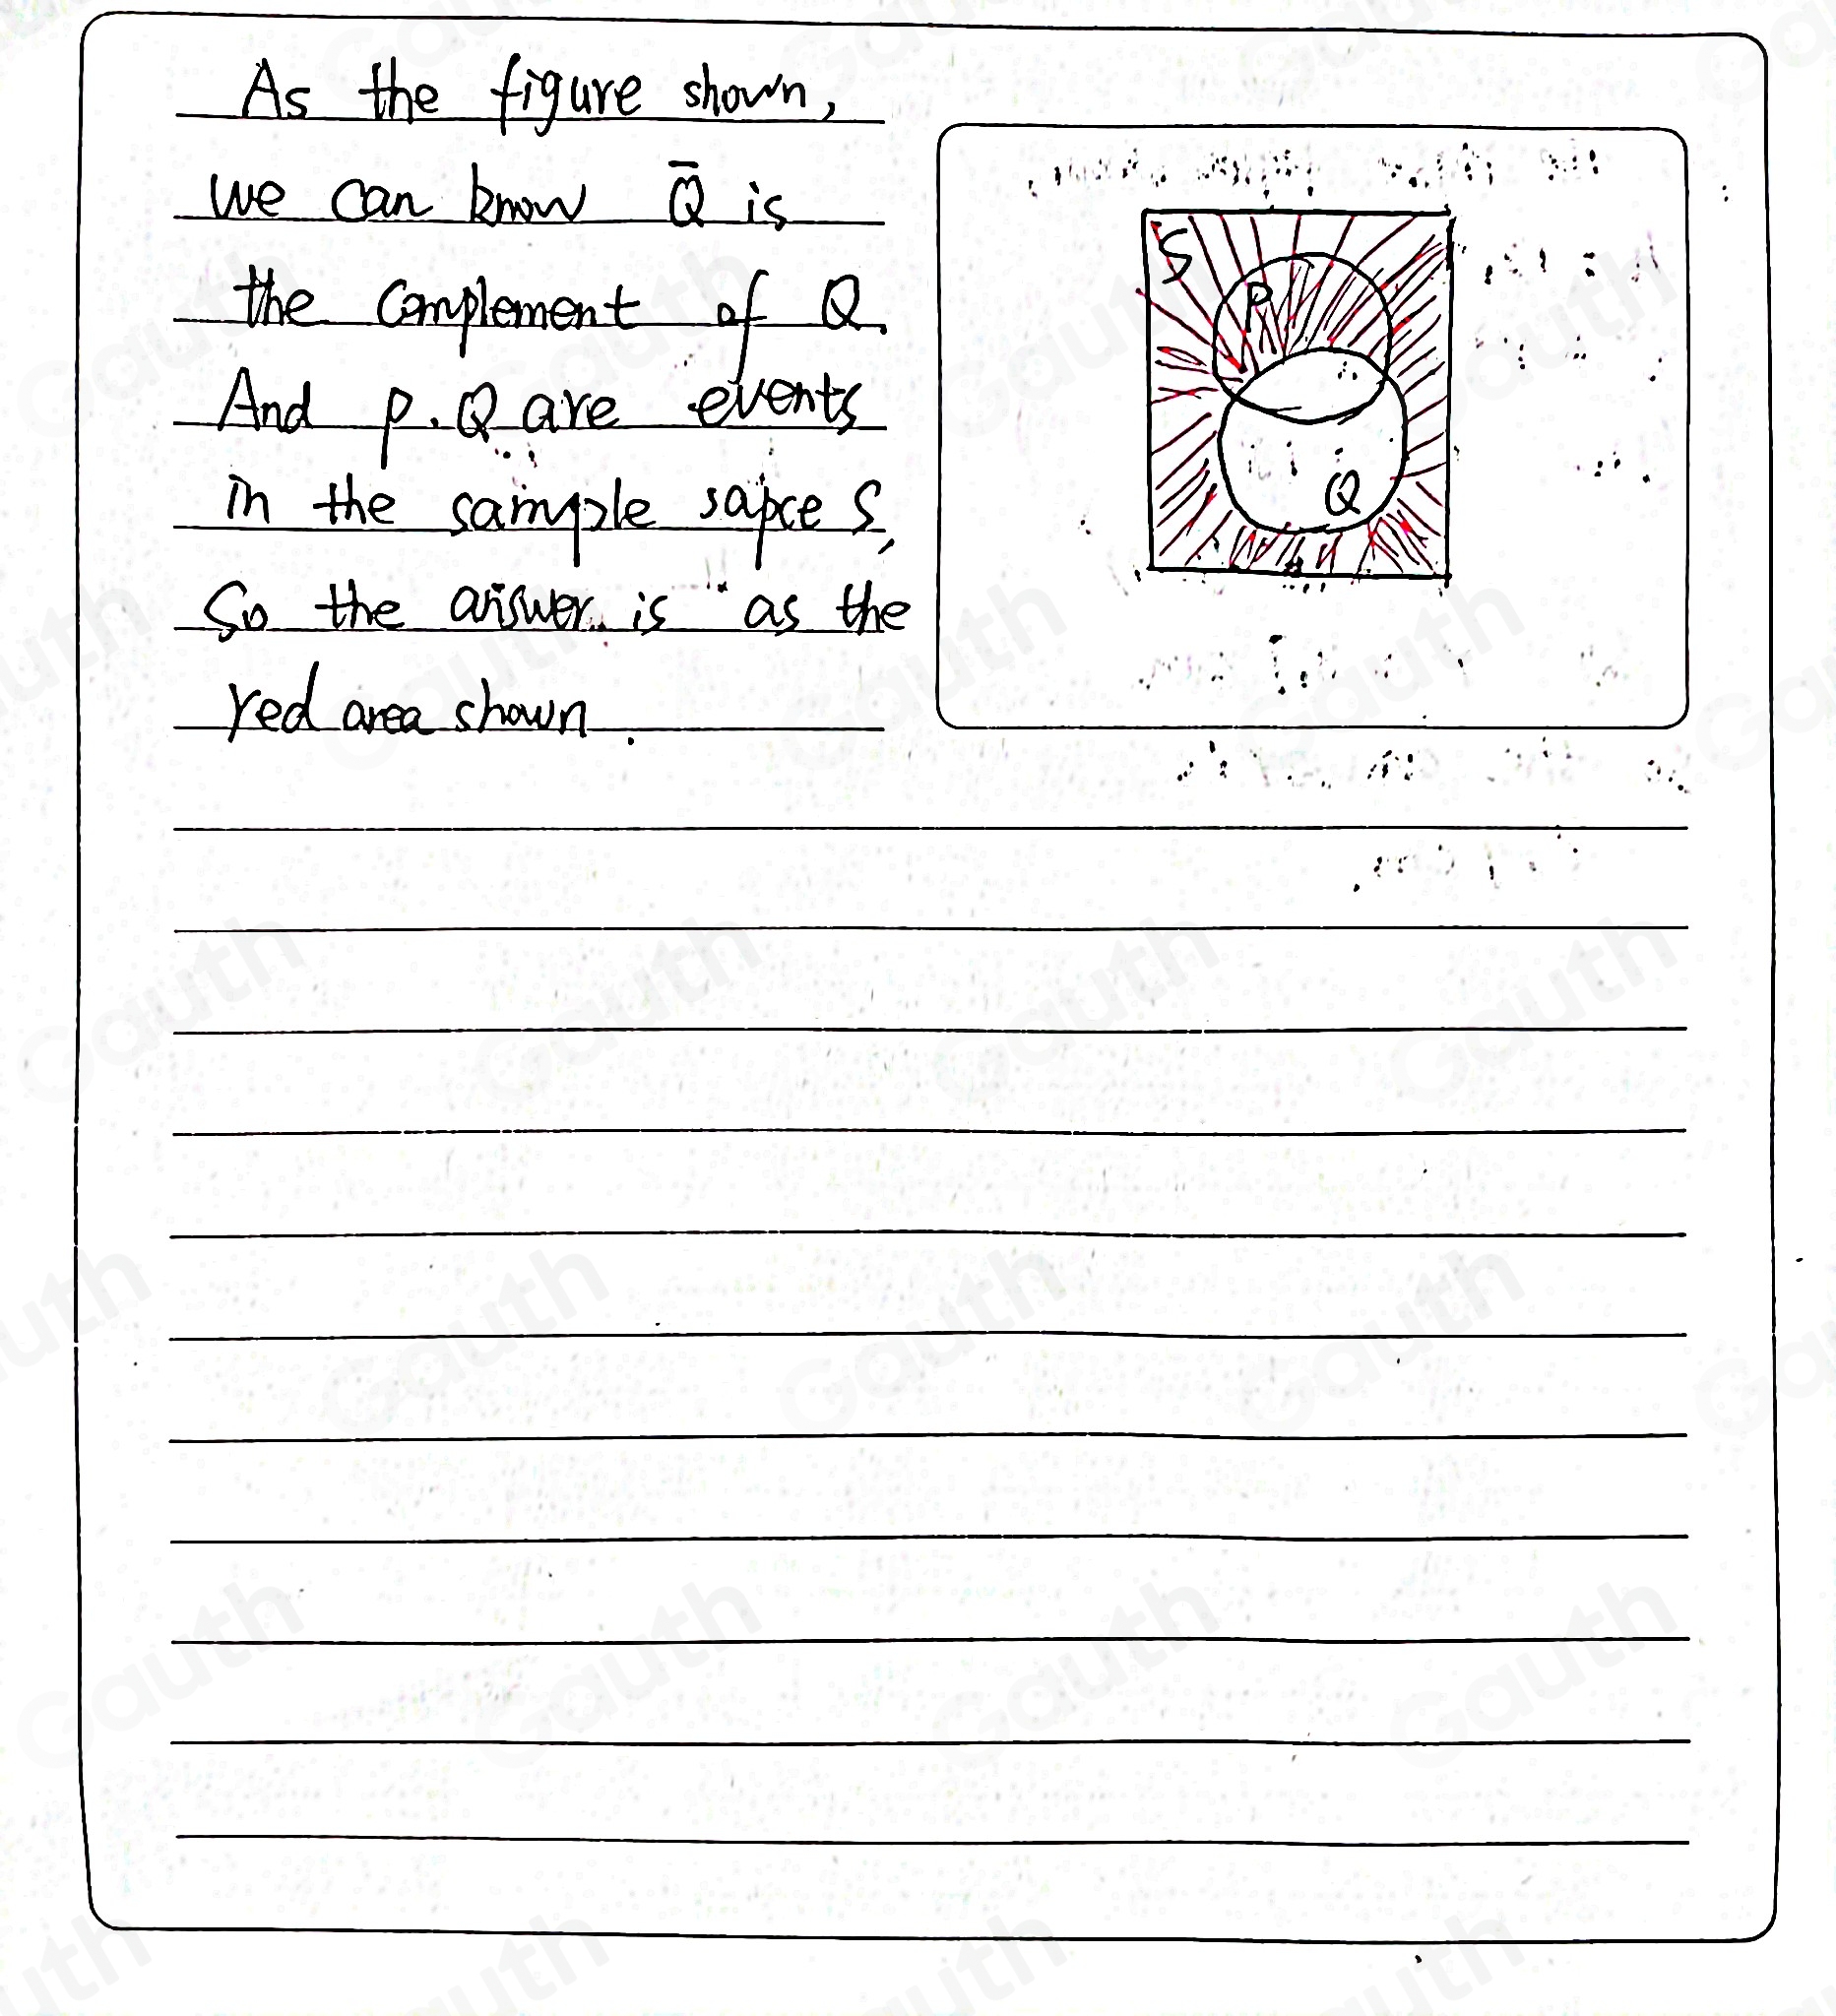 As the figure shown,
we can know Q̄ is
the complement of Q.
And P. Q are events
in the sample sapce S,
So the answer is as the
red area shown.
S
P
Q